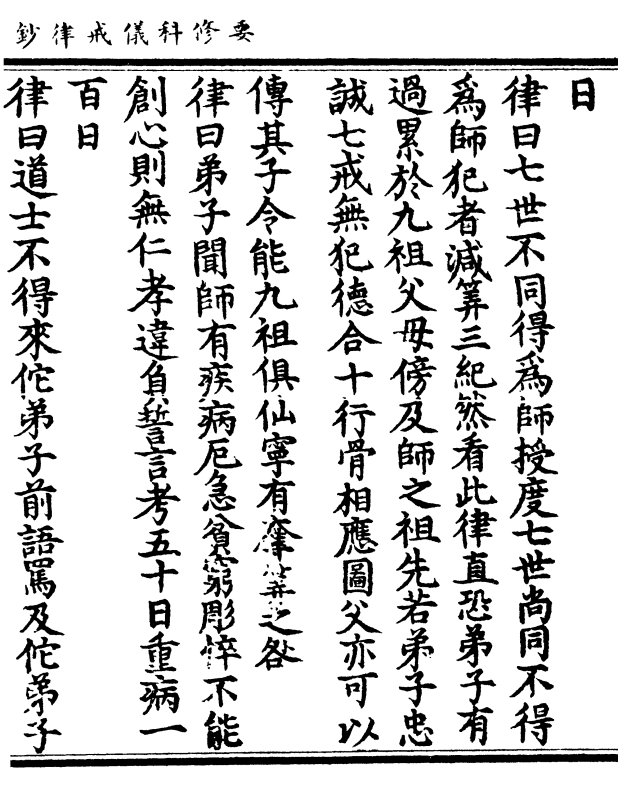 要修科儀戒律鈔
日
律曰七世不同得爲師授度七世尚同不得
爲師犯者減筭三紀然看此律直恐弟子有
過累於九祖父母傍及師之祖先若弟子忠
誠七戒無犯德合十行骨相應圖父亦可以
傳其子令能九祖俱仙寧有奪筭之咎
律曰弟子聞師有疾病厄急貧窮彫悴不能
創心則無仁孝違負誓言考五十日重病一
百日
律曰道士不得來佗弟子前語罵及佗弟子